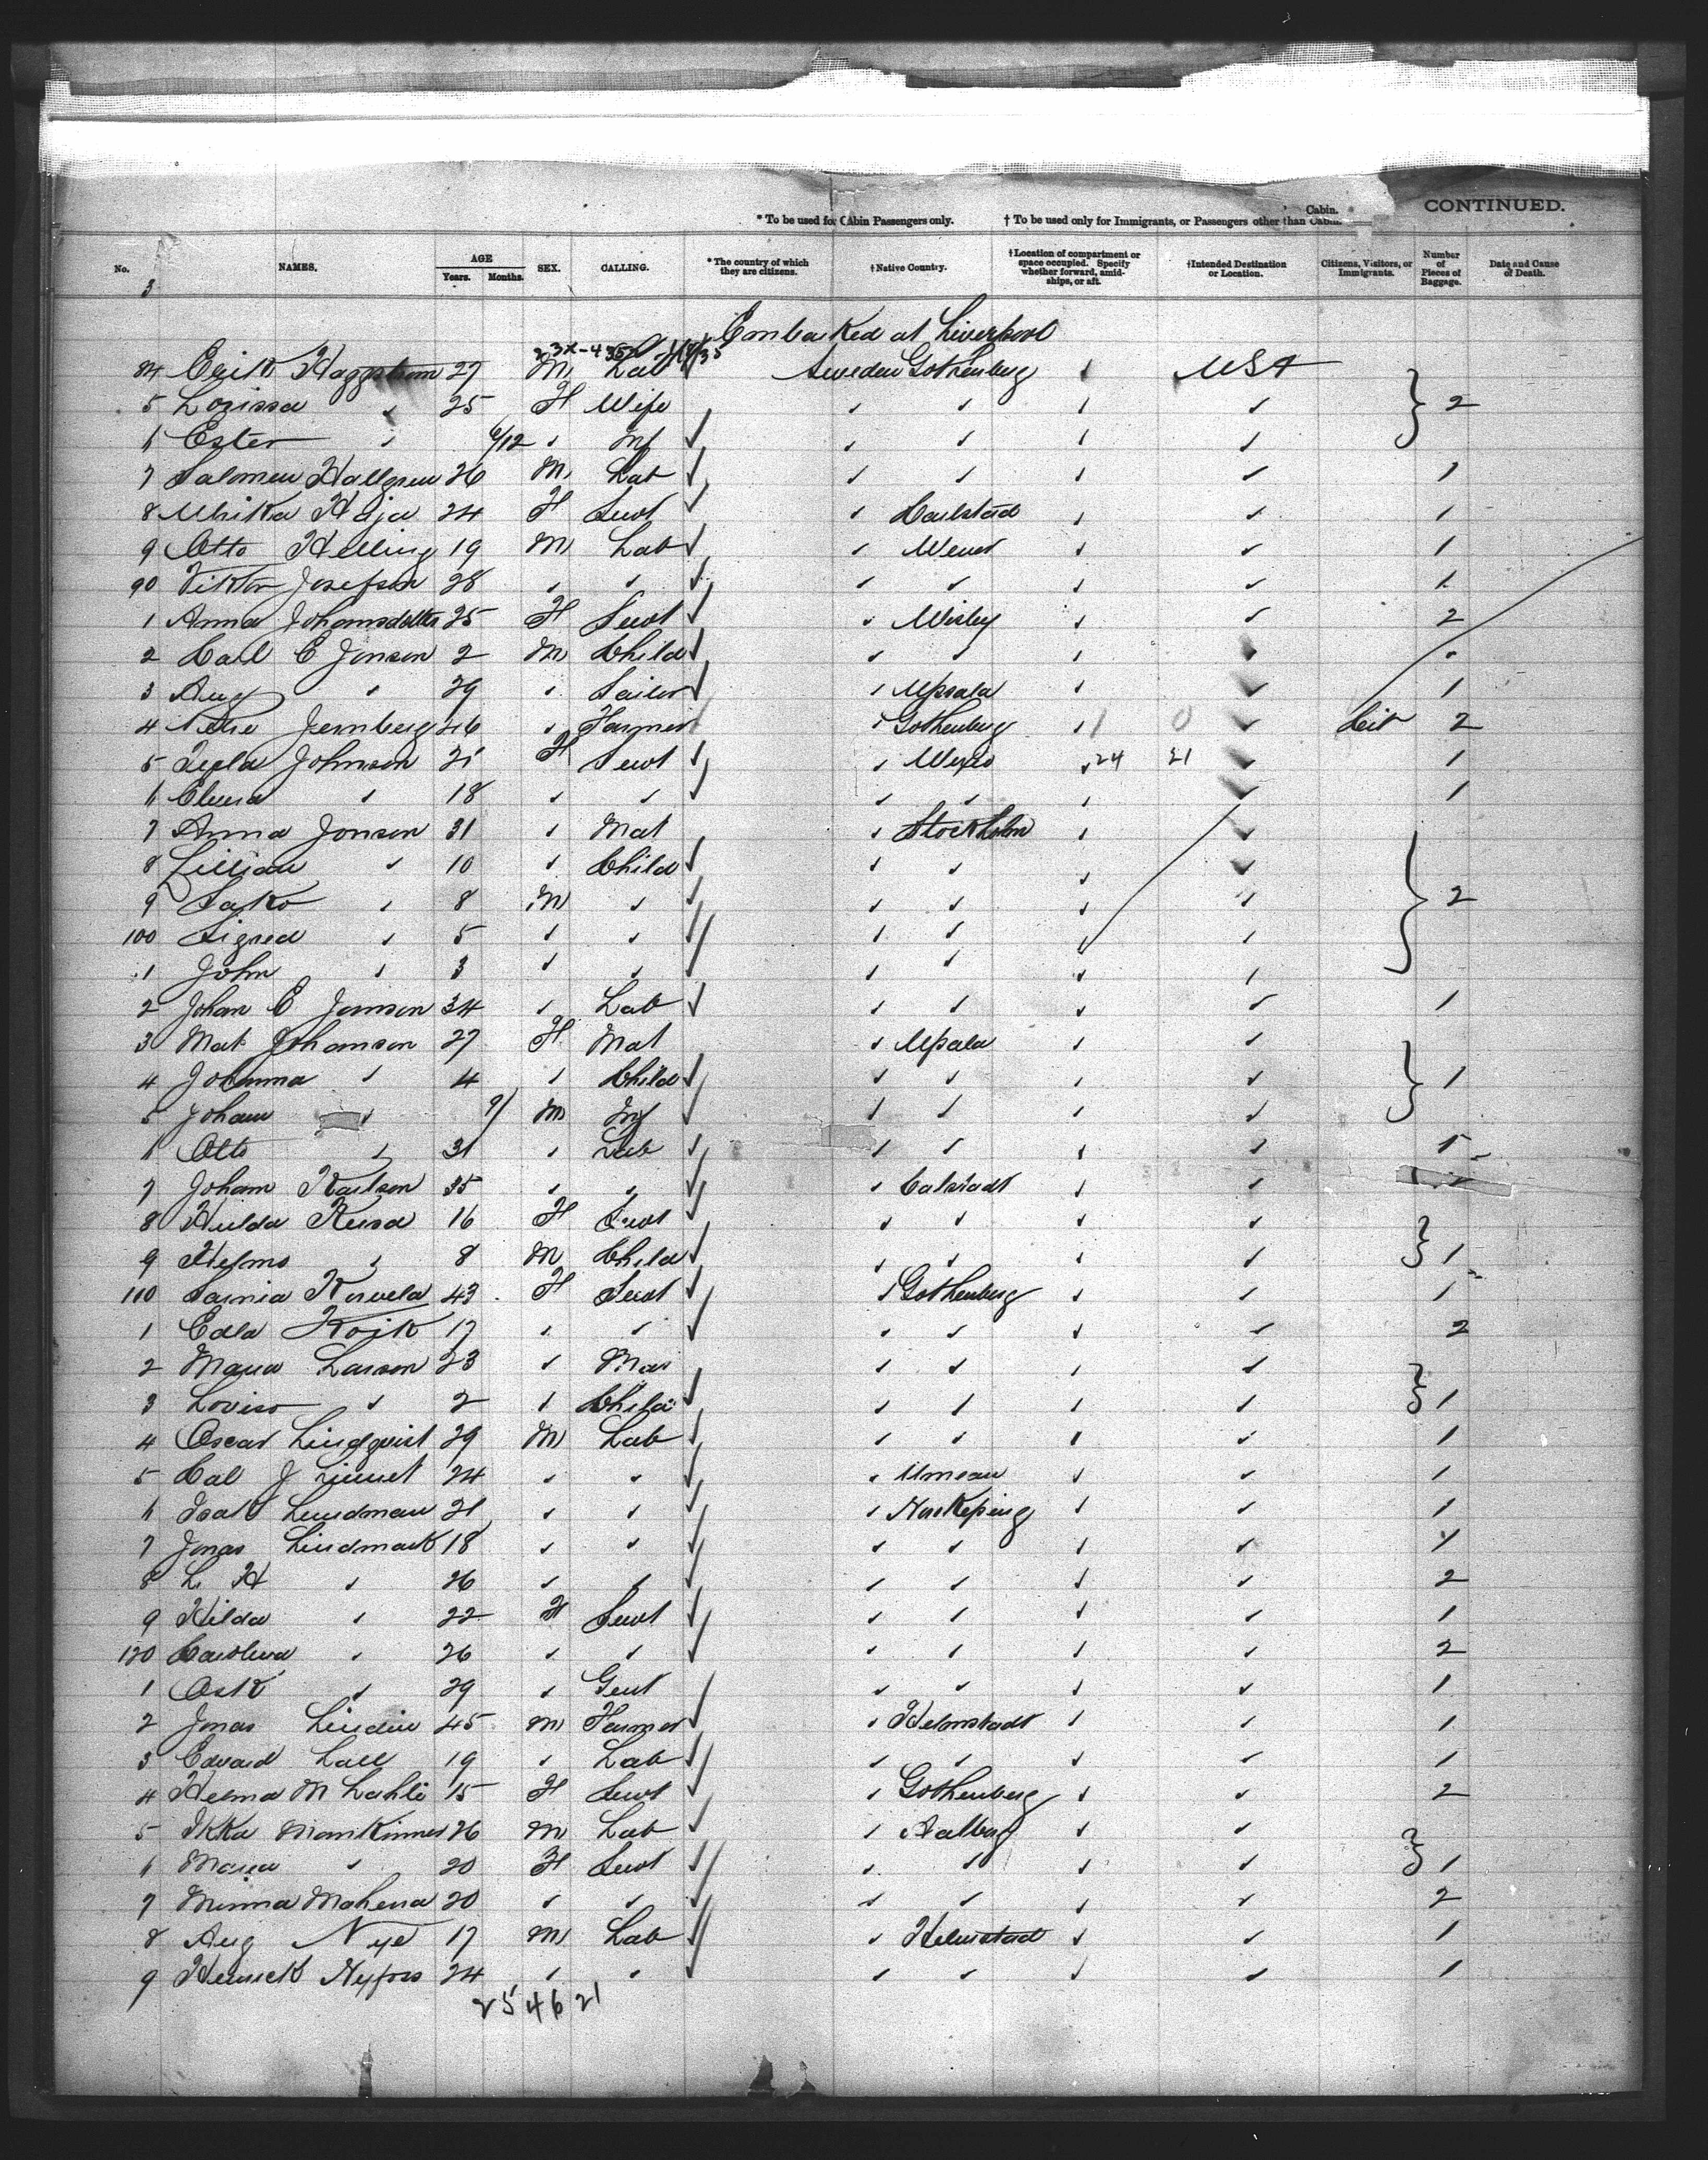 CONTINUED.
* To be used for Cabin Passengers only. † To be used only for Immigrants, or Passengers other than Cabin.
No. NAMES. AGE Years. Months. SEX. CALLING. * The country of which they are citizens. † Native Country. † Location of compartment or space occupied. Specify whether forward, amidships, or aft. † Intended Destination or Location. Citizens, Visitors, or Immigrants. Number of Pieces of Baggage. Date and Cause of Death.
3
Embarked at Liverpool
84 Erik Haggstrom 27 M Lab Sweden Gothenberg USA
5 Lovissa " 25 F Wife " " " " 2
6 Ester " 6/12 " Inf " " " "
7 Salomen Hallgren 26 M Lab " " " " 1
8 24 F Servt " Carlstad " " 1
9 Otto Helling 19 M Lab " " " 1
90 Viktor Josefson 28 " " " " " " 1
1 Anna Johansdotter 25 F Servt " Wisby " " 2
2 Carl E Jonson 2 M Child " " " "
3 Aug " 29 " Sailor " Upsala " " 1
4 Jernberg 46 " Farmer " Gothenberg " " Cit 2
5 Johnson 21 F Servt " Wexio " 24 21 " 1
6 " 18 " " " " " " 1
7 Anna Jonson 31 " Mat " Stockholm " "
8 Lillian " 10 " Child " " " "
9 " 8 M " " " " " 2
100 Sigred " 5 " " " " " "
1 John " 3 " " " " " "
2 Johan E Jonson 34 " Lab " " " " 1
3 Mat Johanson 27 F Mat " Upsala " "
4 Johanna " 4 " Child " " " " 1
5 Johan " 9/ M Inf " " " "
6 Otto " 31 " Lab " " " " 1
7 Johan Karlson 35 " " " Calstadt " "
8 Hulda 16 F Servt " " " "
9 " 8 M Child " " " " 1
110 43 F Servt " Gothenberg " " 1
1 Edla Koik 17 " " " " " " 2
2 Maria Larson 23 " " " " "
3 Loviso " 2 " Child " " " " 1
4 Oscar Lindqvist 29 M Lab " " " " 1
5 24 " " " Umeau " " 1
6 Isak Lundman 21 " " " Norkeping " " 1
7 Jonas Lindmark 18 " " " " " "
8 L. H " 26 " " " " " " 2
9 Hilda " 22 F Servt " " " " 1
120 Carolina " 26 " " " " " " 2
1 Osk " 29 " Gent " " " " 1
2 Jonas Lindin 45 M Farmer " Helmstadt " " 1
3 Edvard Lall 19 " Lab " " " " 1
4 Helma M Lahti 15 F Servt " Gothenberg " " 2
5 26 M Lab " Aalborg " "
6 Maria " 20 F Servt " " " " 1
7 Minna 20 " " " " " " 2
8 Aug Nye 17 M Lab " Helmstad " " 1
9 24 " " " " " " 1
254621